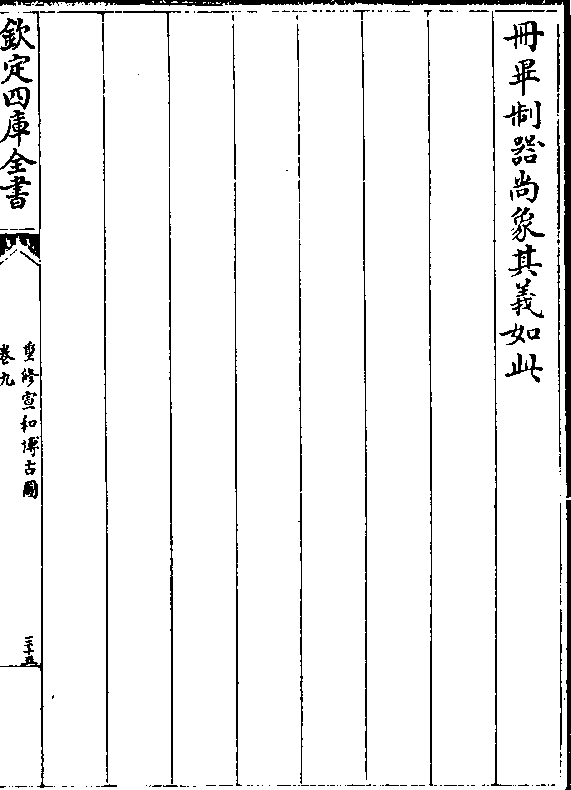 冊畢制器尚象其義如此
欽定四庫全書
重修宣和博古圖
卷九
三十五